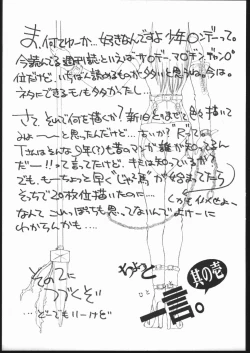 ま、何てゆーか…好きなんですよ少年○ンデーって。
今読んでる週刊誌といえば、サ○デー、マ○ジン、ヂャンプ
位だけど、いちばん読めるものが多いと思うね。今は。
ネタにできるモノも多かったし…
さて、それで何を描くか?新旧とりまぜて色々描いて
みよーーと思ったんだけど…古いか?Rって…。
Tさんはそんな9年(?)も昔のマンガ誰が知ってるん
だー!!って言ってたけど、キミは知っているか?
でも、もーちょっと早く"じゃじゃ馬"が始まってたら
そっちで20枚位描いたのに……
なんて これっぽちも思ってないんでよけーに
わからんかも…。
その2に
つづくぞ
…どーでもいーけど
ちょっと
其の壱
一言。